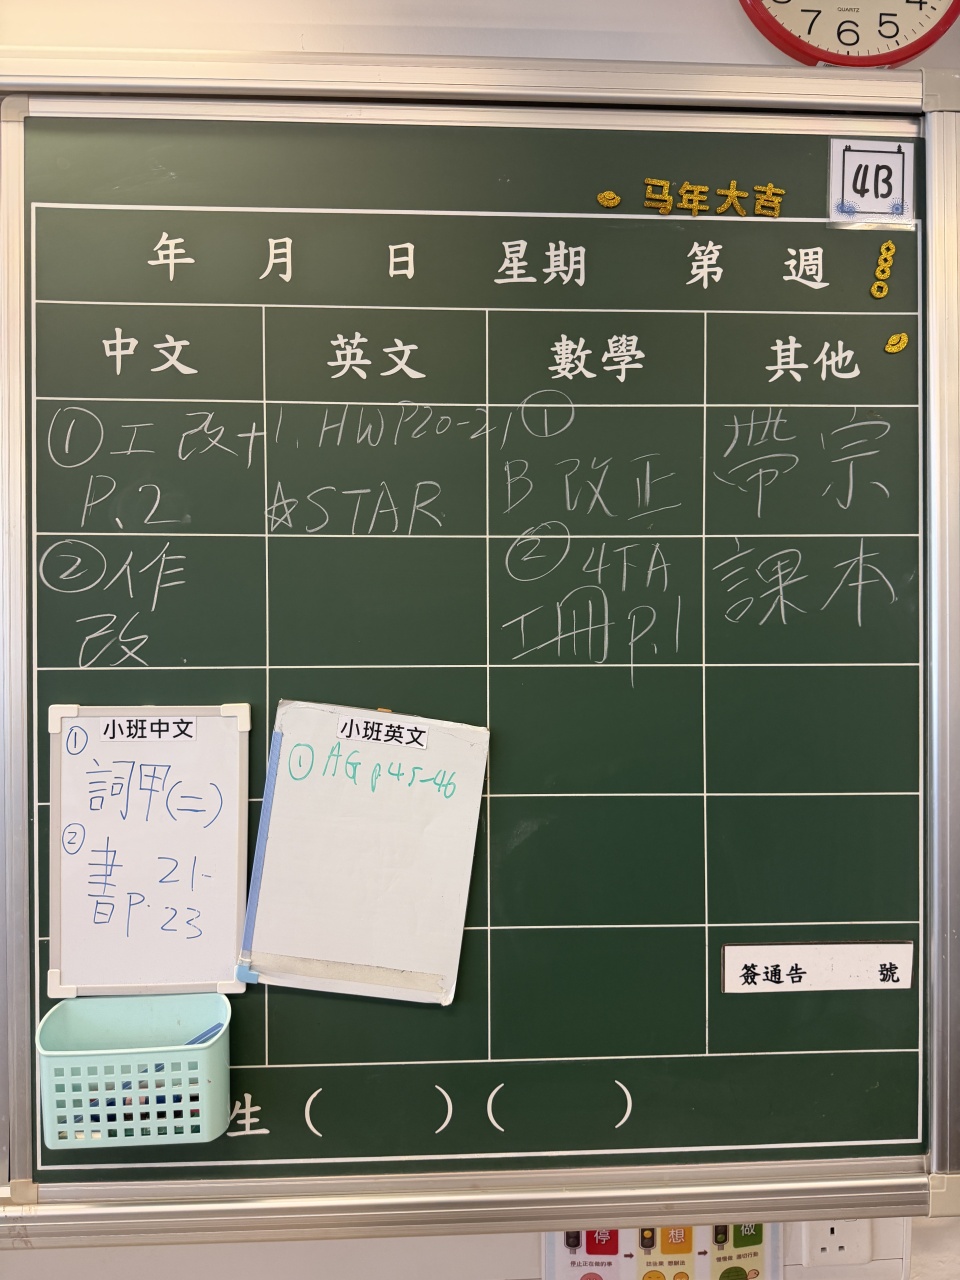 7 6 5 4
QUARTZ
4B
马年大吉
年 月 日 星期 第 週
中文 英文 數學 其他
① 工 改+
P.2
② 作
改.
1. HW P20-21
☆STAR
①
B 改正
② 4TA
工冊 P.1
帶 宗
課本
小班中文
①
詞甲(二)
②
書 21-
P. 23
小班英文
① AG p45-46
簽通告 號
生 ( ) ( )
停 想 做
停止正在做的事